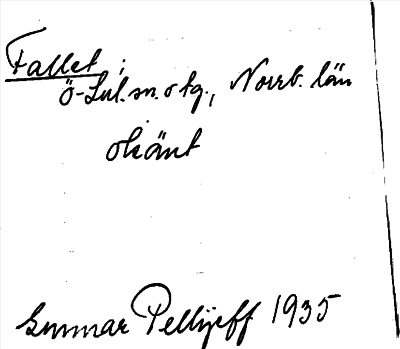 Fallet ;
Ö-Lul. sn. o tg., Norrb. län
okänt
Gunnar Pellijeff 1935